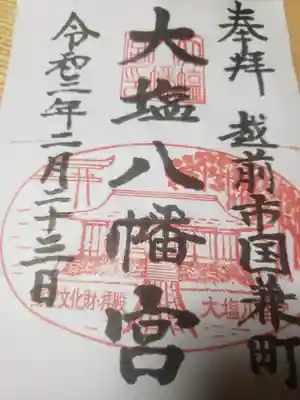 奉拝 越前市国兼町
大塩八幡宮
令和三年二月二十三日
文化財・拝殿
大塩八幡宮